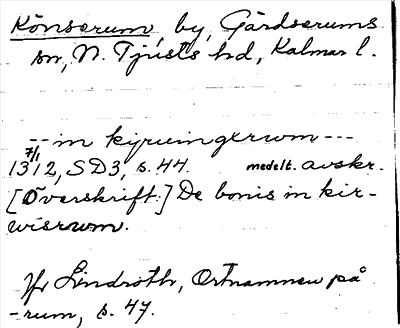 Könserum by, Gärdserums
sn, N. Tjusts hd, Kalmar l.
--in kyruingxrwm---
7/1
1312, SD3, s. 44. medelt. avskr.
[Överskrift:] De bonis in kir-
wisrwm.
Jfr Lindroth, Ortnamnen på
-rum, s. 47.